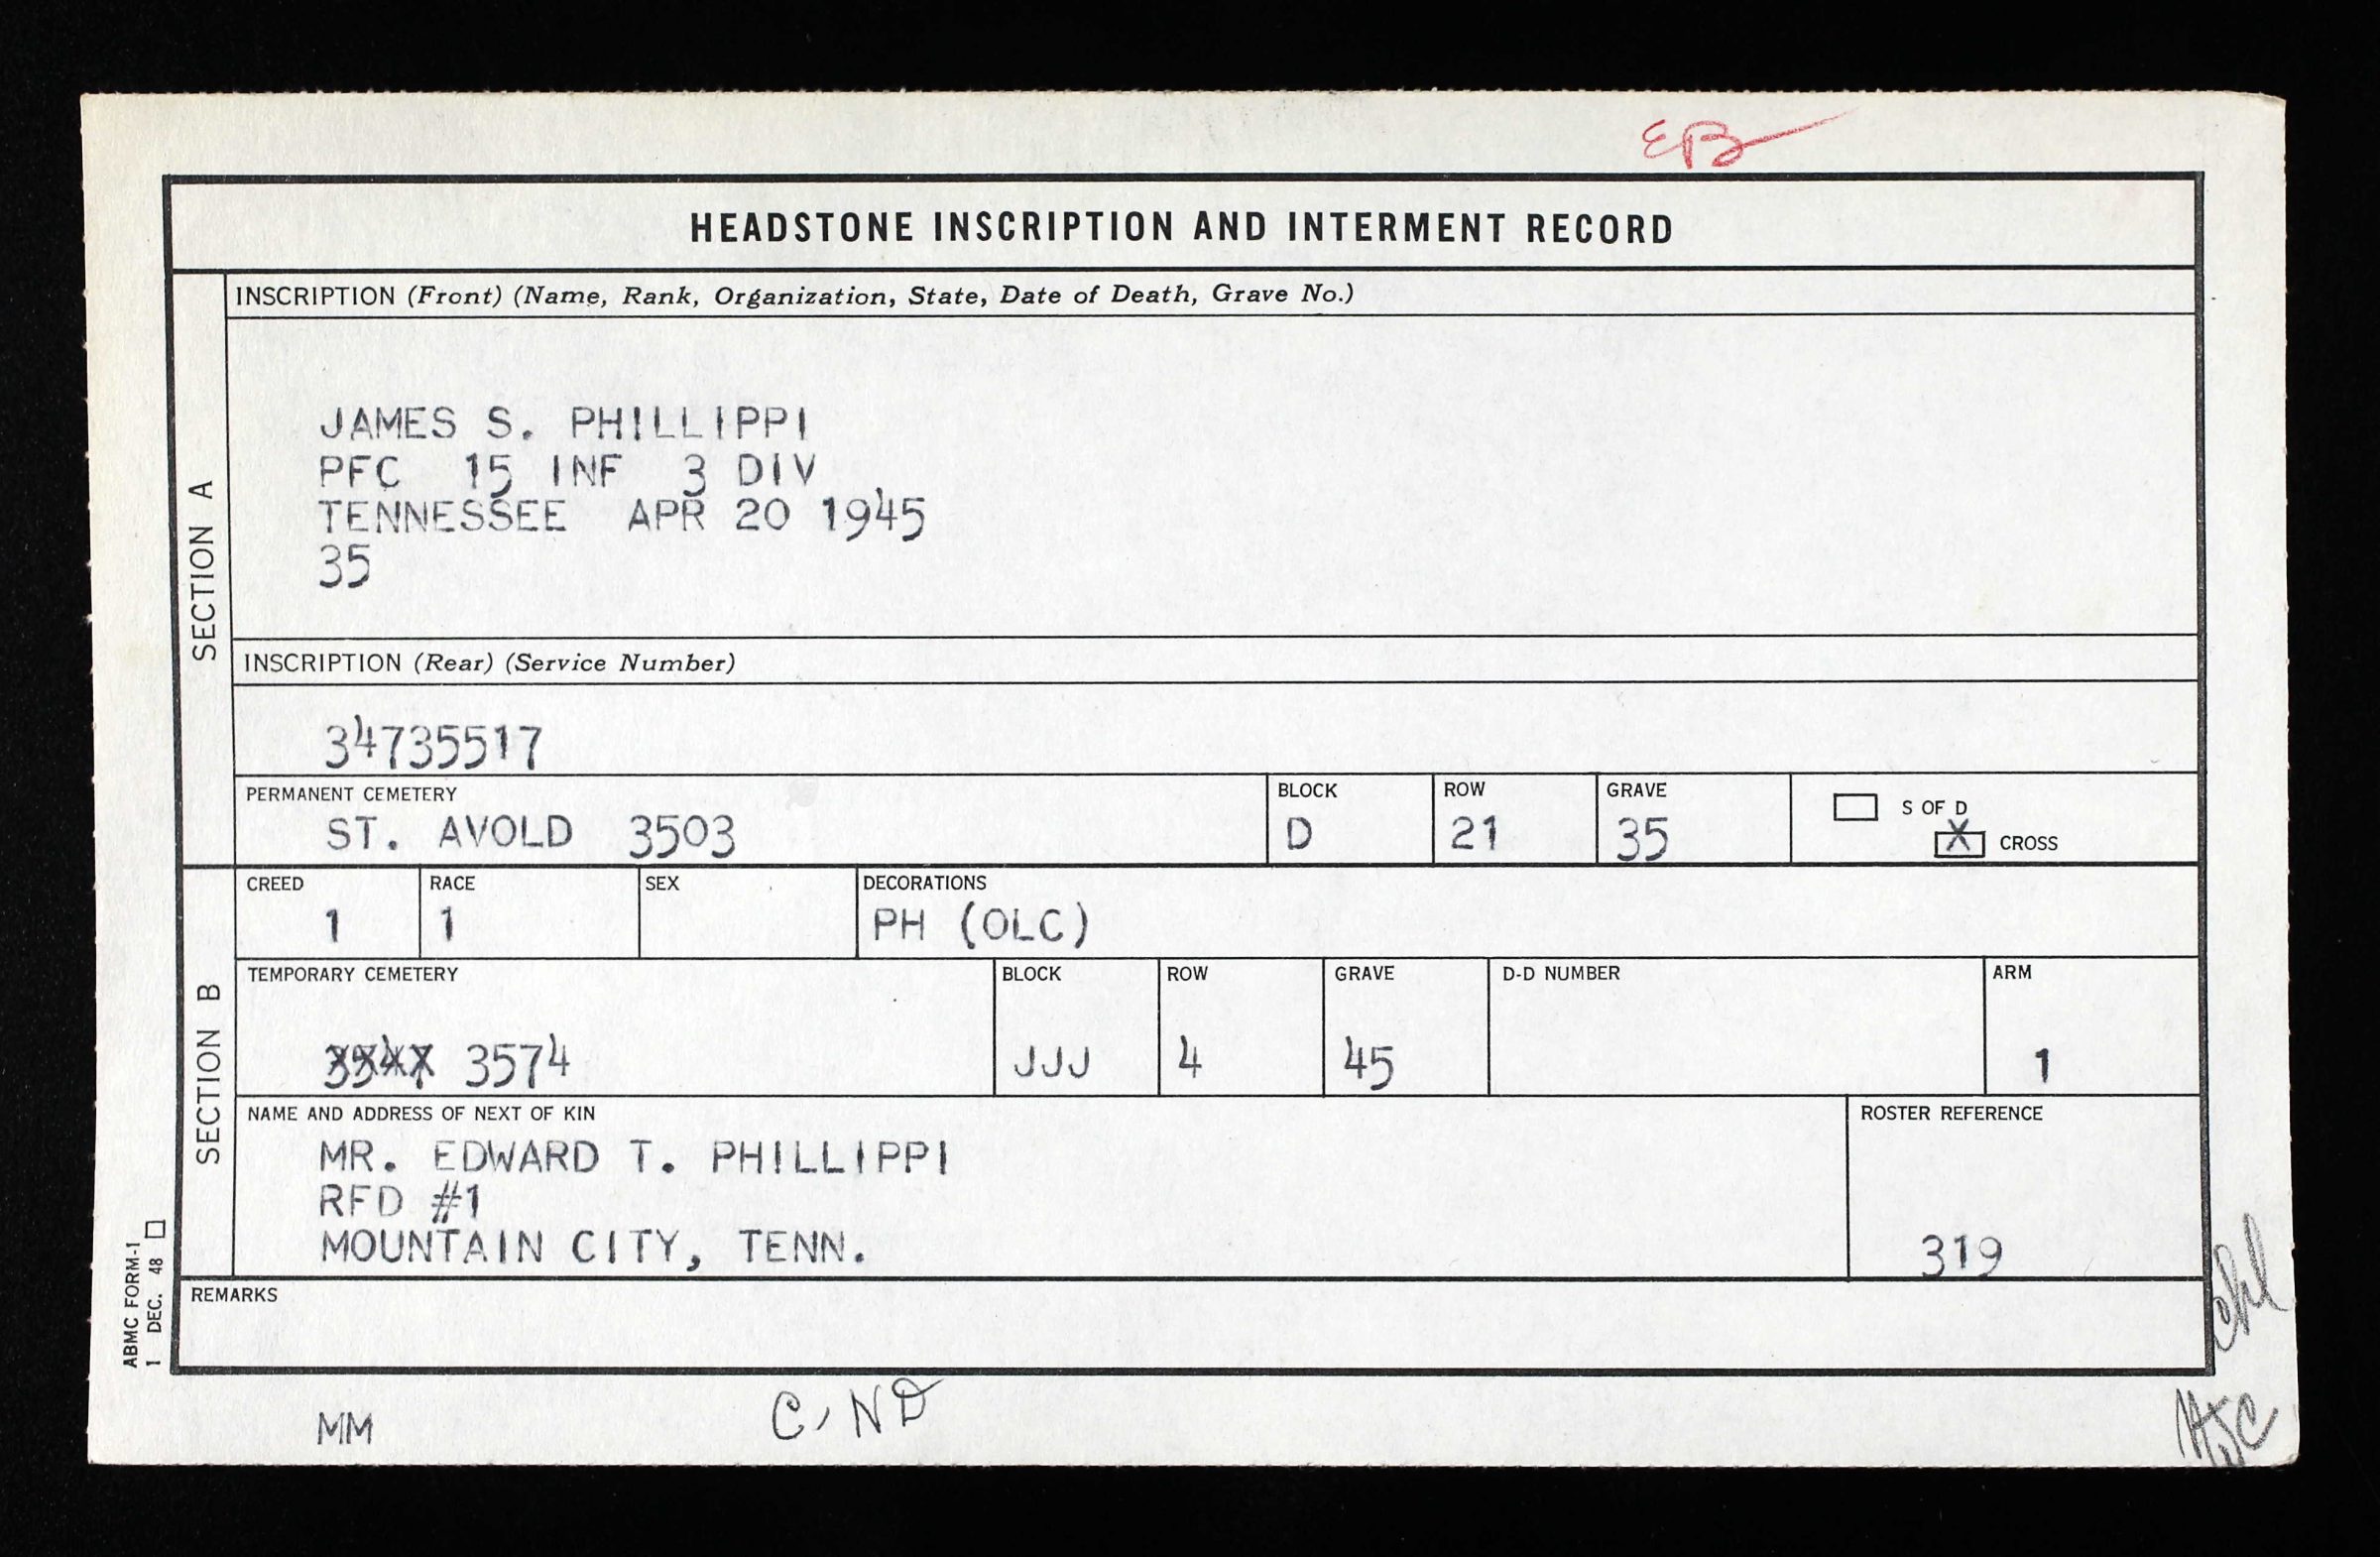 EB
HEADSTONE INSCRIPTION AND INTERMENT RECORD
SECTION A
INSCRIPTION (Front) (Name, Rank, Organization, State, Date of Death, Grave No.)
JAMES S. PHILLIPPI
PFC 15 INF 3 DIV
TENNESSEE APR 20 1945
35
INSCRIPTION (Rear) (Service Number)
34735517
PERMANENT CEMETERY BLOCK ROW GRAVE
ST. AVOLD 3503 D 21 35
S OF D
X CROSS
SECTION B
CREED RACE SEX DECORATIONS
1 1 PH (OLC)
TEMPORARY CEMETERY BLOCK ROW GRAVE D-D NUMBER ARM
3574 JJJ 4 45 1
NAME AND ADDRESS OF NEXT OF KIN ROSTER REFERENCE
MR. EDWARD T. PHILLIPPI
RFD #1
MOUNTAIN CITY, TENN. 319
REMARKS
ABMC FORM-1
1 DEC. 48
MM C, ND